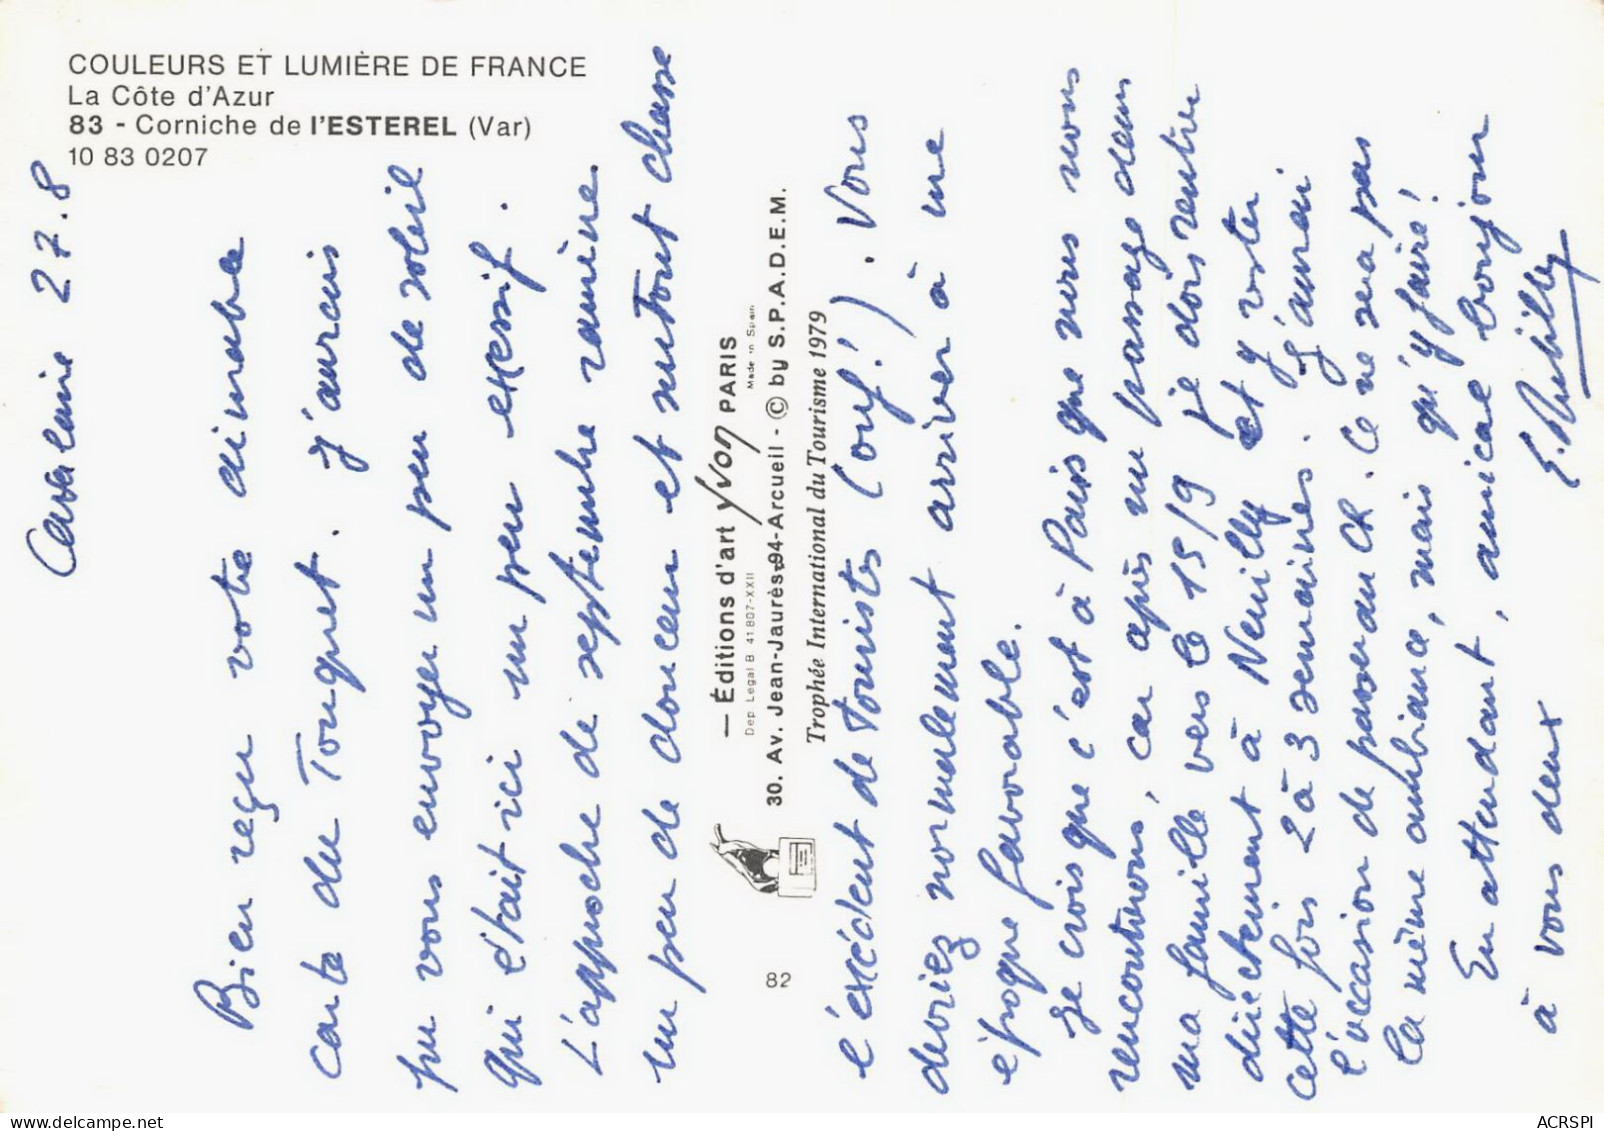 COULEURS ET LUMIÈRE DE FRANCE
La Côte d'Azur
83 - Corniche de l'ESTEREL (Var)
10 83 0207
Cavalaire 27.8
Bien reçu votre aimable
carte du Touquet. J'aurais
pu vous envoyer un peu de soleil
qui était ici un peu excessif.
L'approche de septembre ramène
un peu de douceur et surtout chasse
— Éditions d'art yvon PARIS
Dep. Legal B. 41.807-XXII
Made in Spain
30. Av. Jean-Jaurès-94-Arcueil - © by S.P.A.D.E.M.
Trophée International du Tourisme 1979
82
l'excédent de touristes (ouf!). Vous
devriez normalement arriver à une
époque favorable.
Je crois que c'est à Paris que nous nous
rencontrerons, car après un passage dans
ma famille vers le 15/9 je dois rentrer
directement à Neuilly et y rester
cette fois 2 à 3 semaines. J'aurai
l'occasion de passer au CR. Ce ne sera pas
la même ambiance, mais qu'y faire!
En attendant, amical bonjour
à vous deux